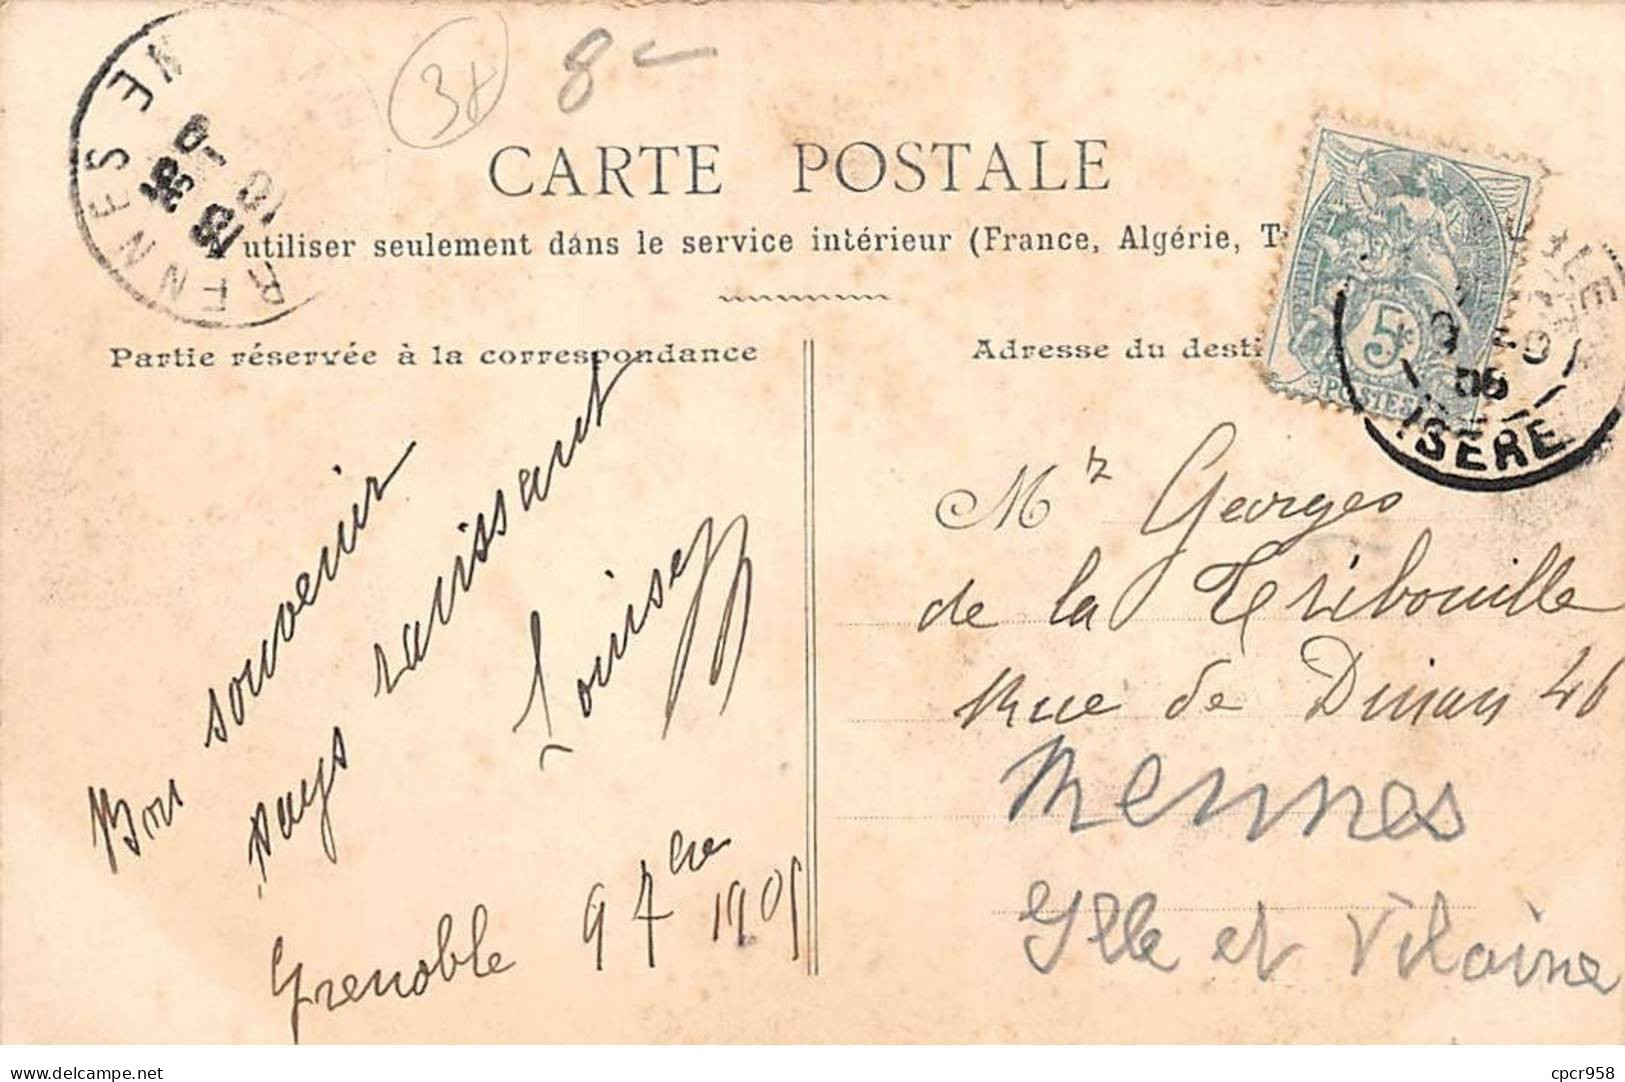 3x
8 -
RENNES
18 35
10 - 9
CARTE POSTALE
utiliser seulement dans le service intérieur (France, Algérie, T
Partie réservée à la correspondance
Adresse du desti
5c
POSTES
BLE
9
05
ISERE
Bon souvenir
pays ravissant
Louise
Grenoble 9 7bre 1905
Mr Georges
de la Tribouille
Rue de Dinan 46
Rennes
Ille et Vilaine
delcampe.net
cpcr958